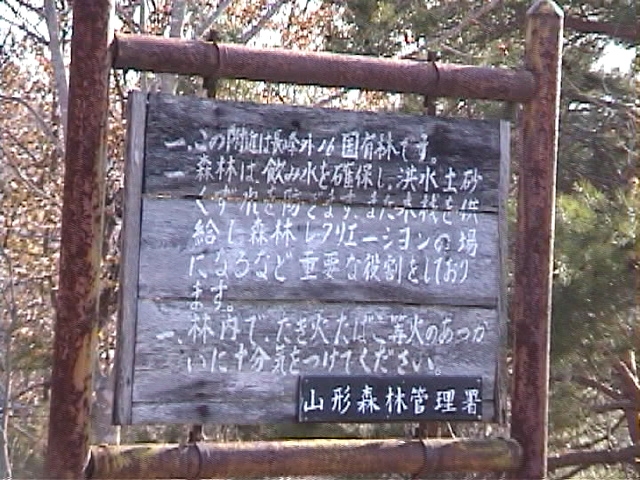 一、この附近は長峰外16国有林です。
一 森林は、飲み水を確保し、洪水土砂
くずれを防ぎます、また木材を供
給し森林レクリエーションの場
になるなど重要な役割をしており
ます。
一、林内で、たき火たばこ等火のあつか
いに十分気をつけてください。
山形森林管理署